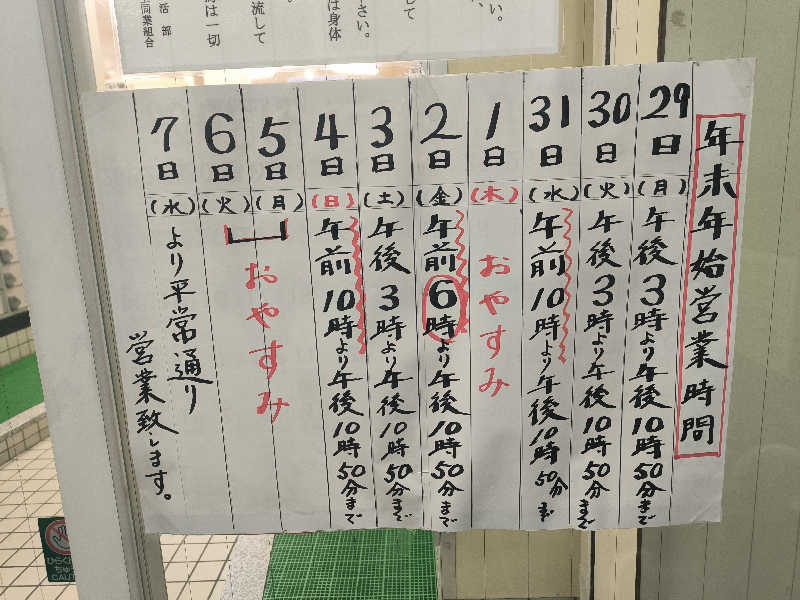 い。
して
さい。
は身体
。
流して
源は一切
活部
同業組合
年末年始営業時間
29日(月)午後3時より午後10時50分まで
30日(火)午後3時より午後10時50分まで
31日(水)午前10時より午後10時50分まで
1日(木)おやすみ
2日(金)午前6時より午後10時50分まで
3日(土)午後3時より午後10時50分まで
4日(日)午前10時より午後10時50分まで
5日(月)
6日(火)
おやすみ
7日(水)より平常通り
営業致します。